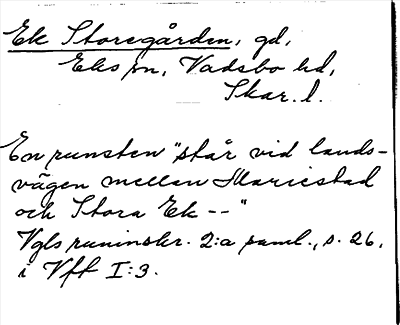 Ek Storegården, gd,
Eks sn, Vadsbo hd,
Skar. l.
En runsten "står vid lands-
vägen mellan Mariestad
och Stora Ek --"
Vgls runinskr. 2:a saml., s. 26,
i Vff I:3.